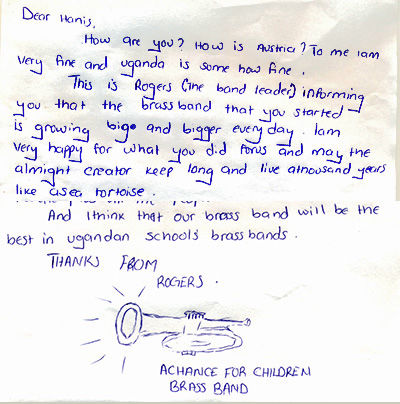 Dear Hanis,
How are you? How is Austria? To me iam
very fine and uganda is some how fine.
This is Rogers (the band leader) informing
you that the brassband that you started
is growing bigo and bigger every day. Iam
very happy for what you did forus and may the
almight creator keep long and live athousand years
like asea tortoise.
And Ithink that our brass band will be the
best in ugandan schools brassbands.
THANKS FROM
ROGERS.
ACHANCE FOR CHILDREN
BRASS BAND